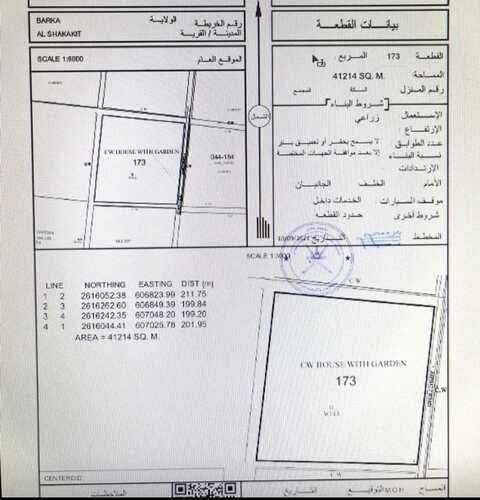 BARKA
الولاية
AL SHAKAKIT
رقم الخريطة
المدينة / القرية
SCALE 1:6000
الموقع العام
CW HOUSE WITH GARDEN
173
044-154
LINE NORTHING EASTING DIST (m)
1 2 2616052.38 606823.99 211.75
2 3 2616262.60 606849.39 199.84
3 4 2616242.35 607048.20 199.20
4 1 2616044.41 607025.78 201.95
AREA = 41214 SQ. M.
CENTEROID
الملاحظات
الشمال
بيانات القطعة
القطعة 173 المربع
المساحة 41214 SQ. M.
رقم المنزل السكة المجمع
شروط البناء
الإستعمال زراعي
الإرتفاع
عدد الطوابق لا يسمح بحفر أو تعميق بئر
نسبة البناء إلا بعد موافقة الجهات المختصة
الإرتدادات
الأمام الخلف الجانبان
موقف السيارات الخدمات داخل
شروط أخرى حدود القطعة
المخطط التاريخ
SCALE 1:3000
C.W
CW HOUSE WITH GARDEN
173
C.W
C.W
المساح MOH التوقيع التاريخ